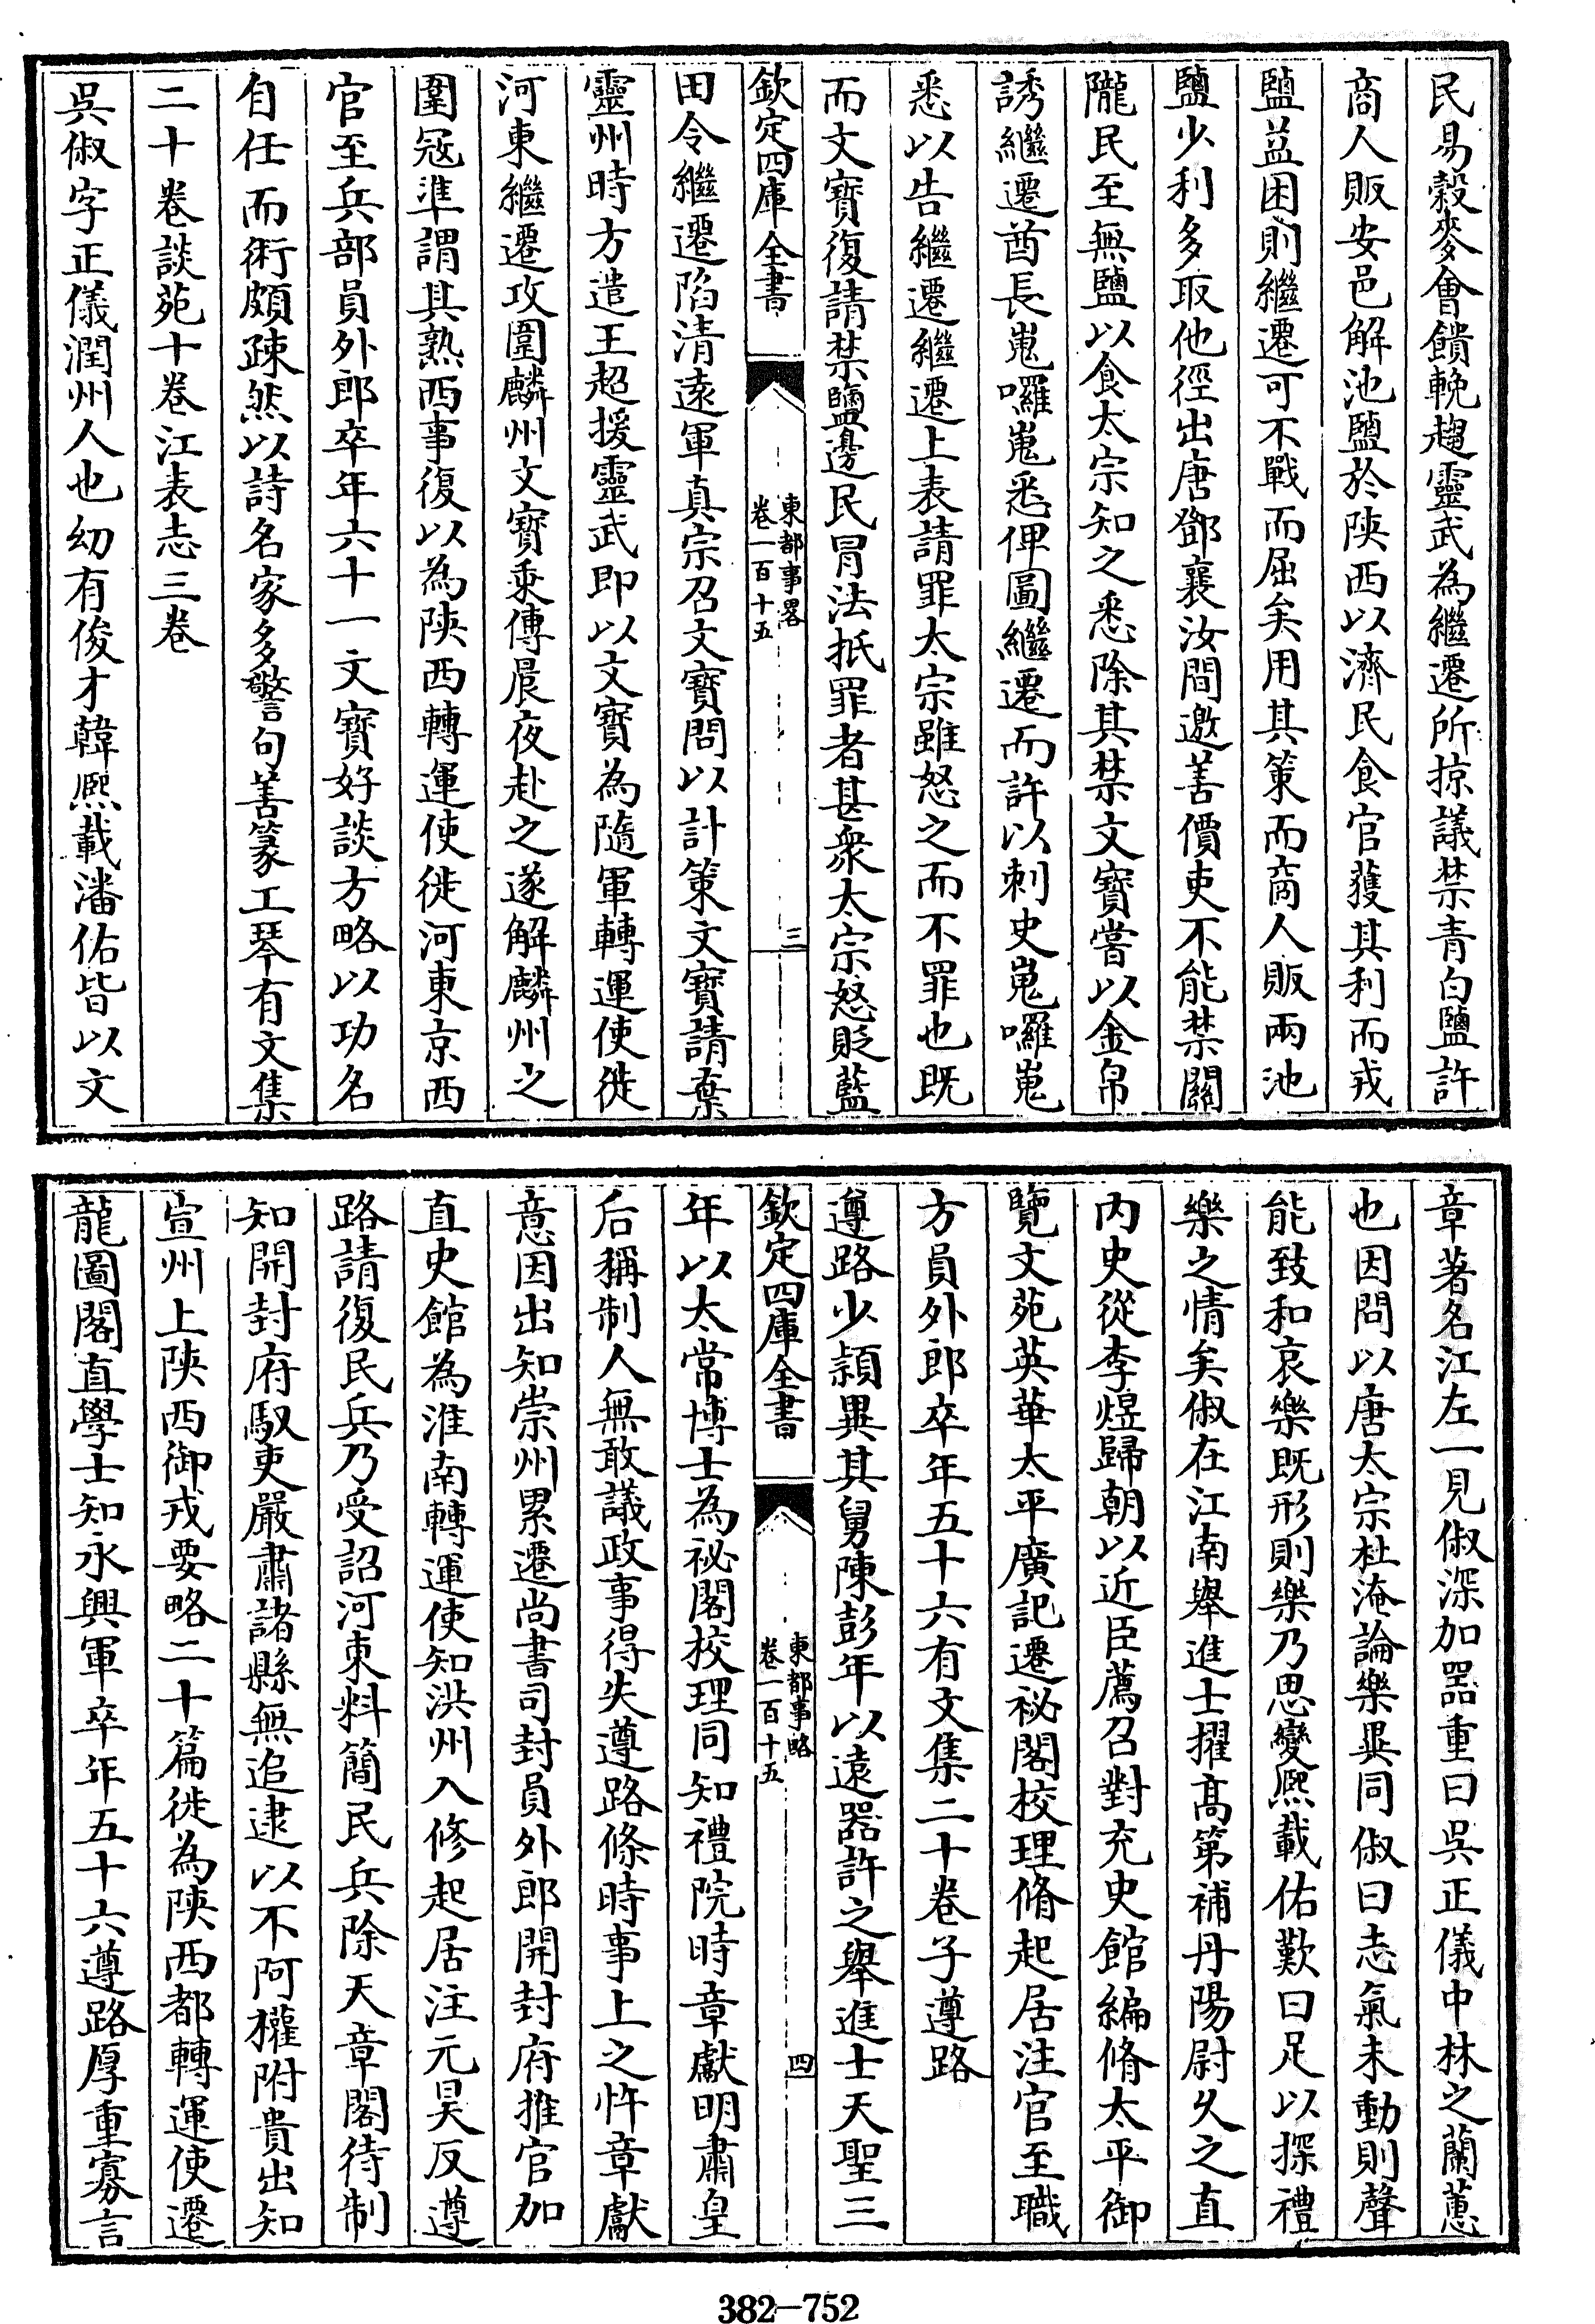 民易穀麥會饋輓趨靈武為繼遷所掠議禁青白鹽許
商人販安邑解池鹽於陜西以濟民食官獲其利而戎
鹽益困則繼遷可不戰而屈矣用其策而商人販兩池
鹽少利多取他徑出唐鄧襄汝間邀善價吏不能禁關
隴民至無鹽以食太宗知之悉除其禁文寶嘗以金帛
誘繼遷酋長嵬囉嵬悉俾圖繼遷而許以刺史嵬囉嵬
悉以告繼遷繼遷上表請罪太宗雖怒之而不罪也既
而文寶復請禁鹽邊民冐法抵罪者甚衆太宗怒貶藍
欽定四庫全書
東都事畧
卷一百十五
三
田令繼遷陷清遠軍真宗召文寶問以計策文寶請棄
靈州時方遣王超援靈武即以文寶為隨軍轉運使徙
河東繼遷攻圍麟州文寶乘傳晨夜赴之遂解麟州之
圍冦準謂其熟西事復以為陜西轉運使徙河東京西
官至兵部員外郎卒年六十一文寶好談方略以功名
自任而術頗疎然以詩名家多警句善篆工琴有文集
二十卷談苑十卷江表志三卷
吳俶字正儀潤州人也幼有俊才韓熈載潘佑皆以文
章著名江左一見俶深加器重曰吳正儀中林之蘭蕙
也因問以唐太宗杜淹論樂異同俶曰志氣未動則聲
能致和哀樂既形則樂乃思變熈載佑歎曰足以探禮
樂之情矣俶在江南舉進士擢髙第補丹陽尉乆之直
内史從李煜歸朝以近臣薦召對充史館編脩太平御
覽文苑英華太平廣記遷秘閣校理脩起居注官至職
方員外郎卒年五十六有文集二十卷子遵路
遵路少頴異其舅陳彭年以遠器許之舉進士天聖三
欽定四庫全書
東都事略
卷一百十五
四
年以太常博士為祕閣校理同知禮院時章獻明肅皇
后稱制人無敢議政事得失遵路條時事上之忤章獻
意因出知崇州累遷尚書司封員外郎開封府推官加
直史館為淮南轉運使知洪州入修起居注元昊反遵
路請復民兵乃受詔河東料簡民兵除天章閣待制
知開封府馭吏嚴肅諸縣無追逮以不阿權附貴出知
宣州上陜西御戎要略二十篇徙為陜西都轉運使遷
龍圖閣直學士知永興軍卒年五十六遵路厚重寡言
382—752